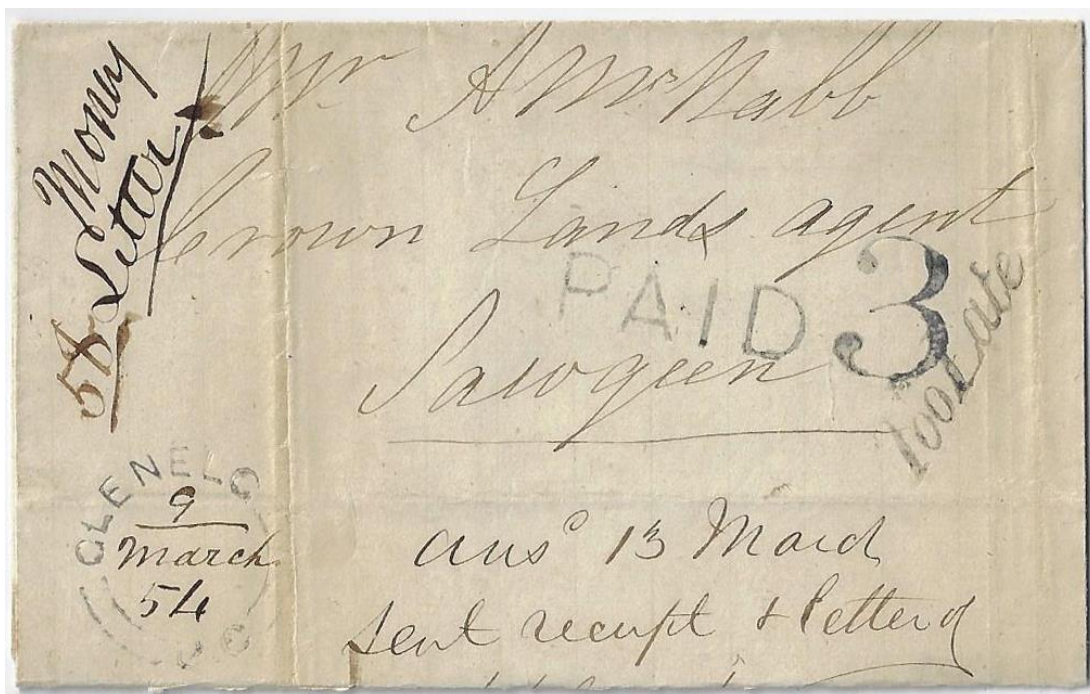 Money
Letter
58
Mr A McNabb
Crown Lands agent
PAID 3
Too Late
Sawgeen
GLENELG
9
March
54
ansd 13 March
sent receipt & letter of